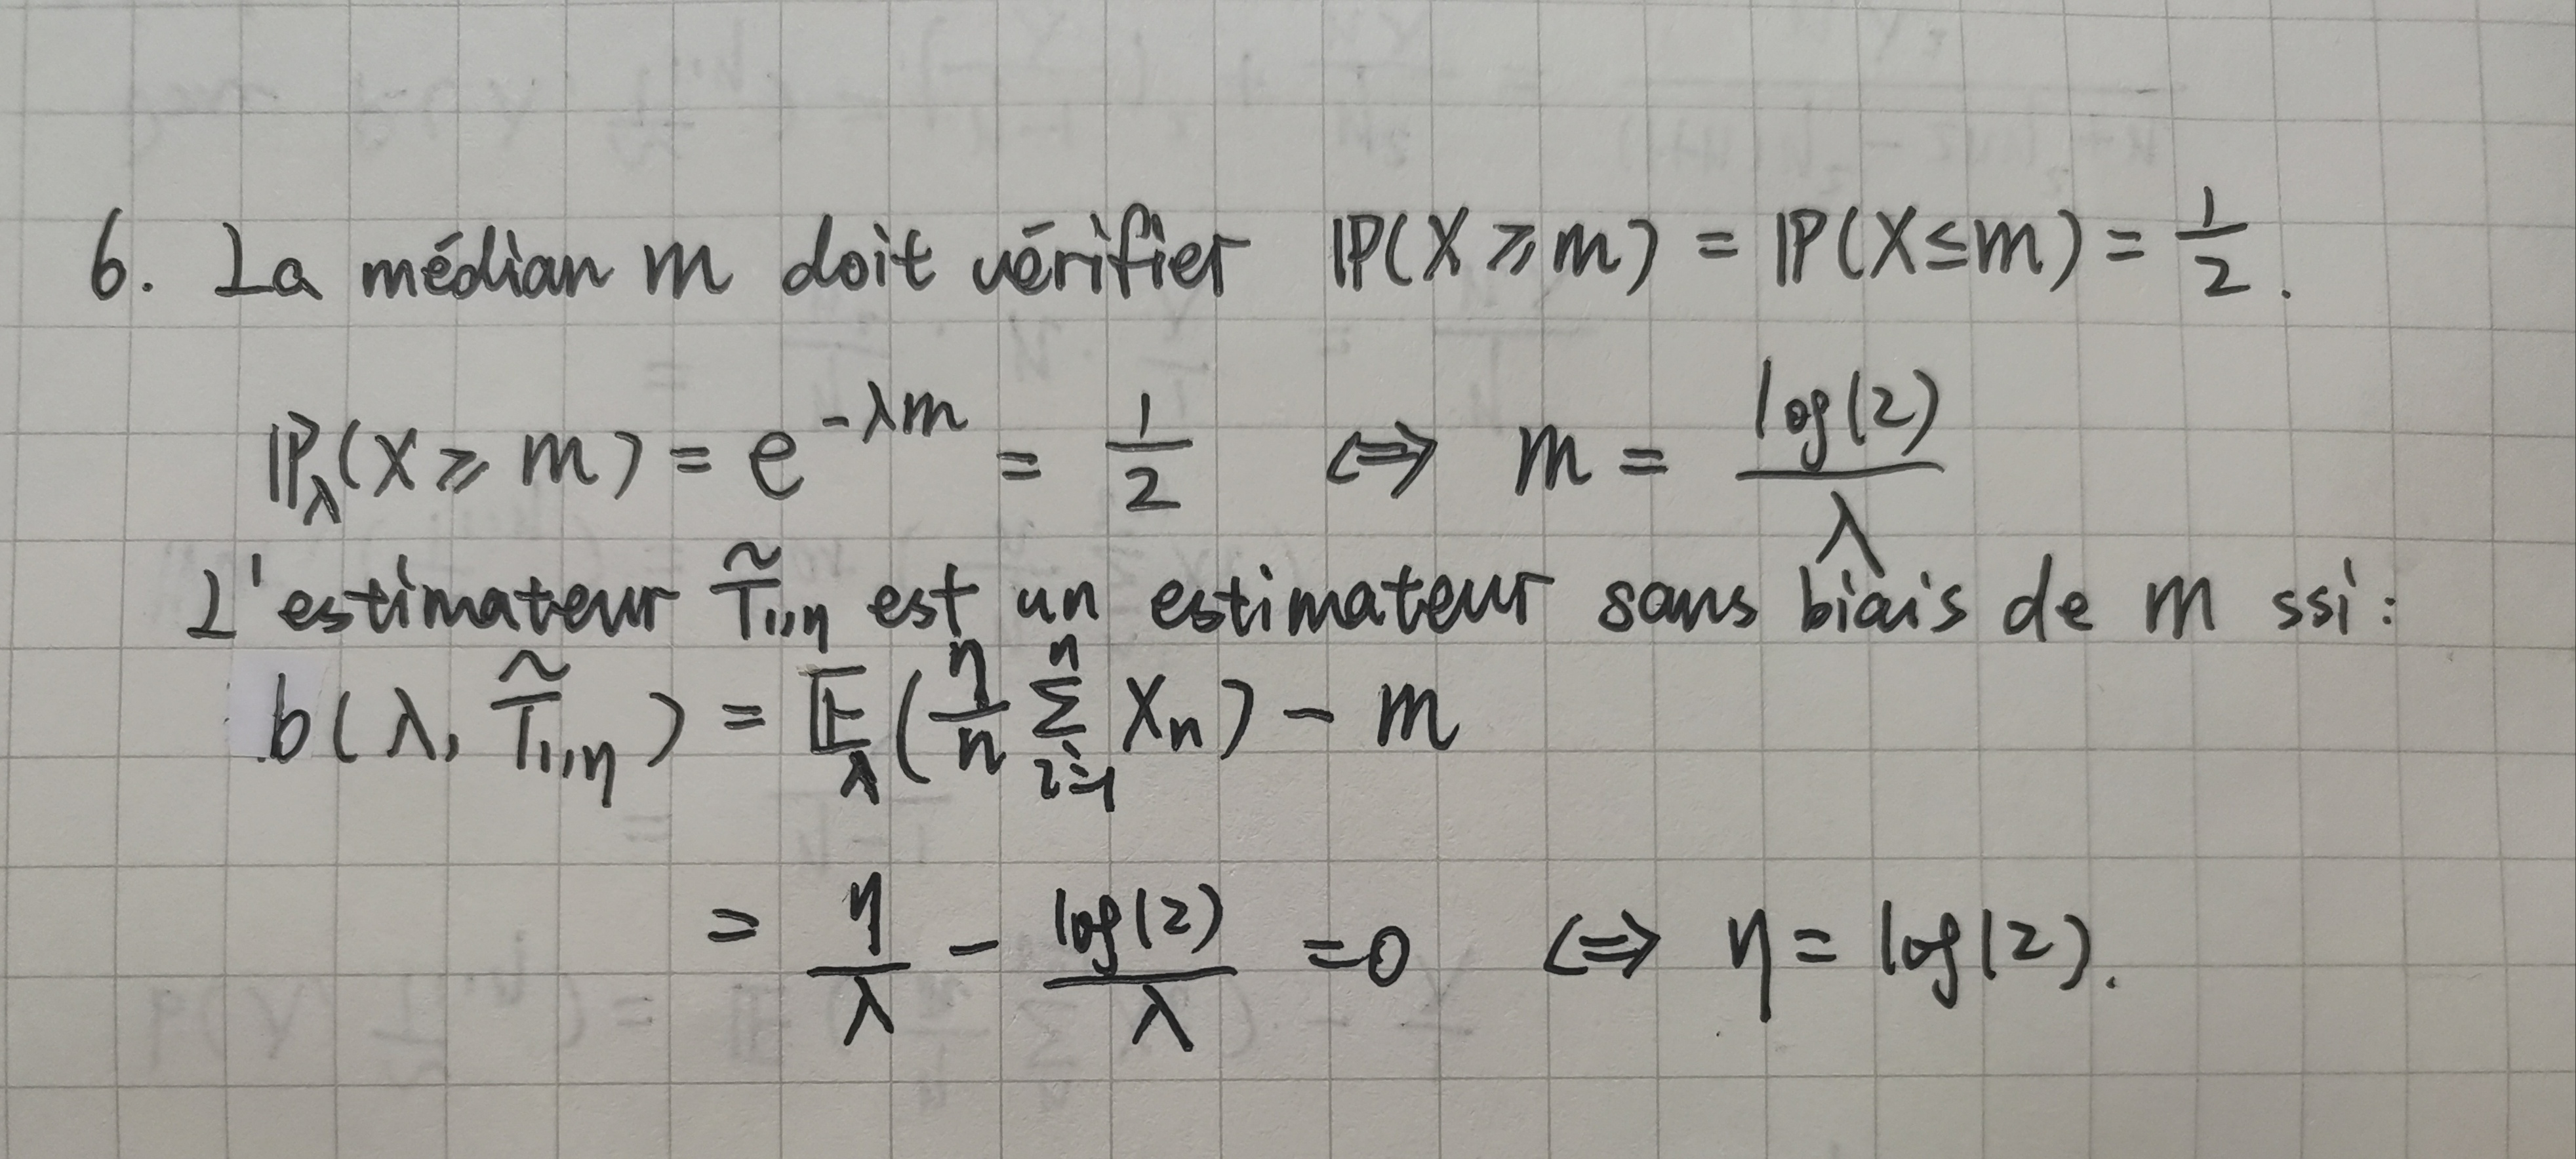 6. La médian m doit vérifier ℙ(X ⩾ m) = ℙ(X ≤ m) = 1/2.
ℙ_λ(X ⩾ m) = e^{-λm} = 1/2 ⇔ m = log(2)/λ
L'estimateur T̃_{1,η} est un estimateur sans biais de m ssi:
b(λ, T̃_{1,η}) = 𝔼_λ(η/n ∑_{i=1}^{n} X_n) - m
= η/λ - log(2)/λ = 0 ⇔ η = log(2).